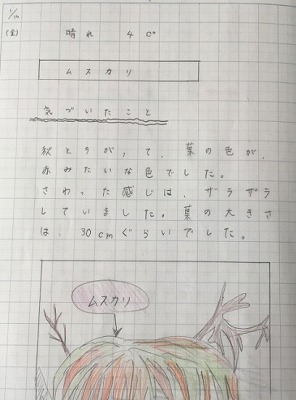 (金)
晴れ 4℃
ムスカリ
気づいたこと
秋とちがって、葉の色が、
赤みたいな色でした。
さわった感じは、ザラザラ
していました。葉の大きさ
は、30cmぐらいでした。
ムスカリ